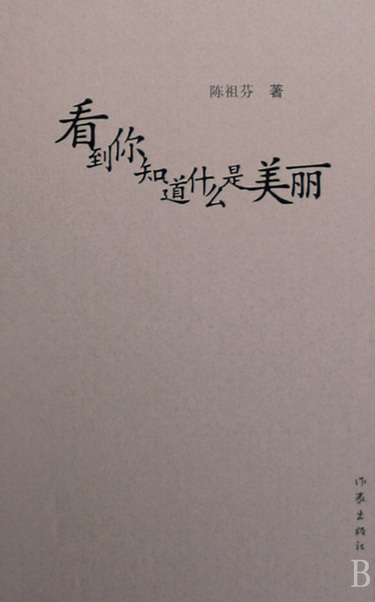 陈祖芬 著
看到你知道什么是美丽
作家出版社
B